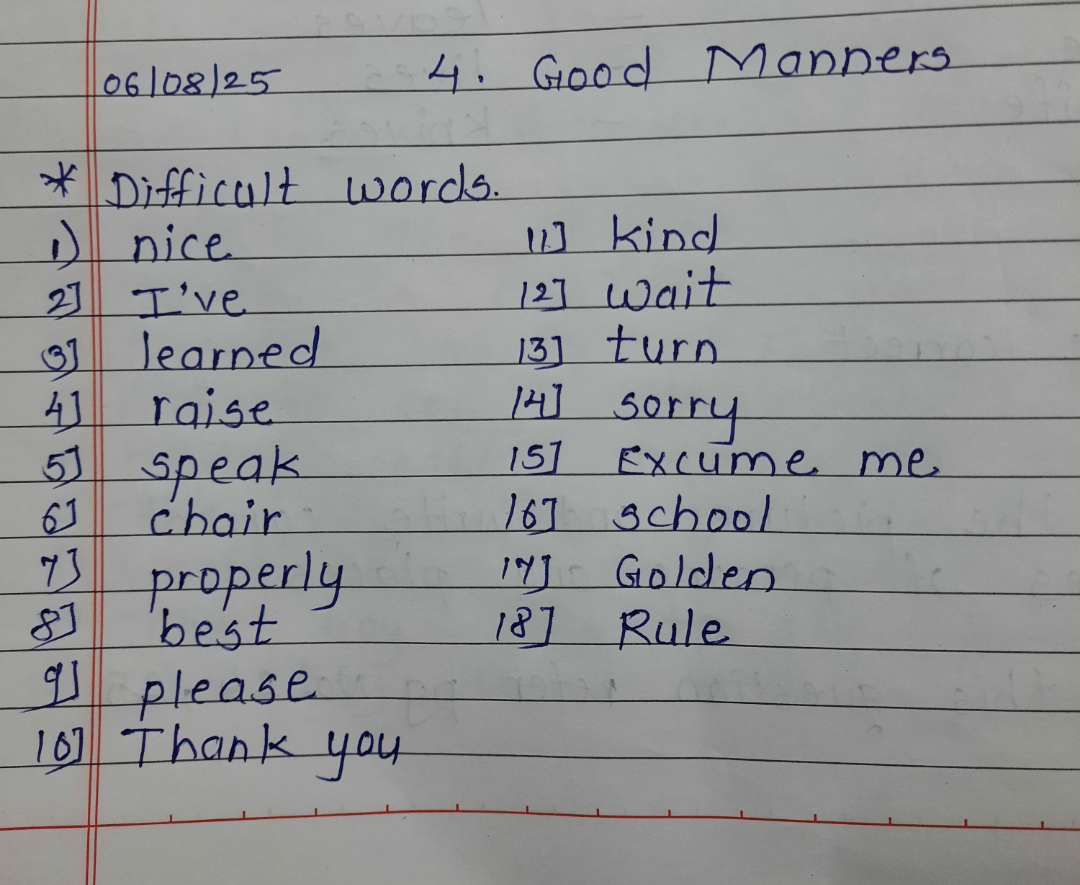 06/08/25 4. Good Manners
* Difficult words.
1) nice
2] I've
3] learned
4] raise
5] speak
6] chair
7] properly
8] best
9] please
10] Thank you
11] kind
12] wait
13] turn
14] sorry
15] Excume me
16] school
17] Golden
18] Rule